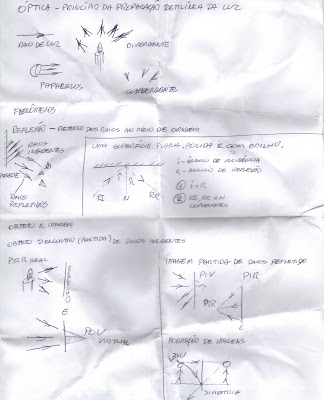 ÓPTICA - PRINCÍPIO DA PROPAGAÇÃO RETILÍNEA DA LUZ
RAIO DE LUZ
DIVERGENTE
PARALELOS
CONVERGENTE
FENÔMENOS
REFLEXÃO - RETORNO DOS RAIOS AO MEIO DE ORIGEM
RAIOS
INCIDENTES
PAREDE
RAIOS
REFLETIDOS
UMA SUPERFÍCIE PLANA, POLIDA E COM BRILHO.
i - ÂNGULO DE INCIDÊNCIA
r - ÂNGULO DE REFLEXÃO
i r
① i = R
RI N RR
② RI, RR E N
COPLANARES
OBJETO E IMAGEM
OBJETO
DE RAIOS INCIDENTES
POR REAL
E
POV
VIRTUAL
E
IMAGEM PARTIDA DE RAIOS REFLETIDO
PIV PIR
FORMAÇÃO DE IMAGENS
SIMETRIA